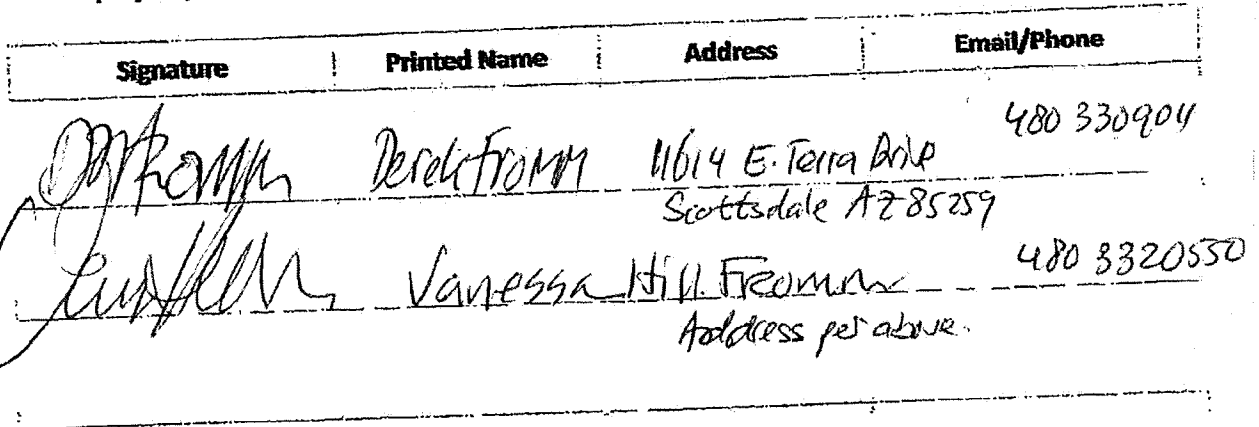 Signature Printed Name Address Email/Phone
480 330904
Derek Fromm 11614 E. Terra Drive
Scottsdale AZ 85259
480 3320550
Vanessa Hill Fromm
Address per above.